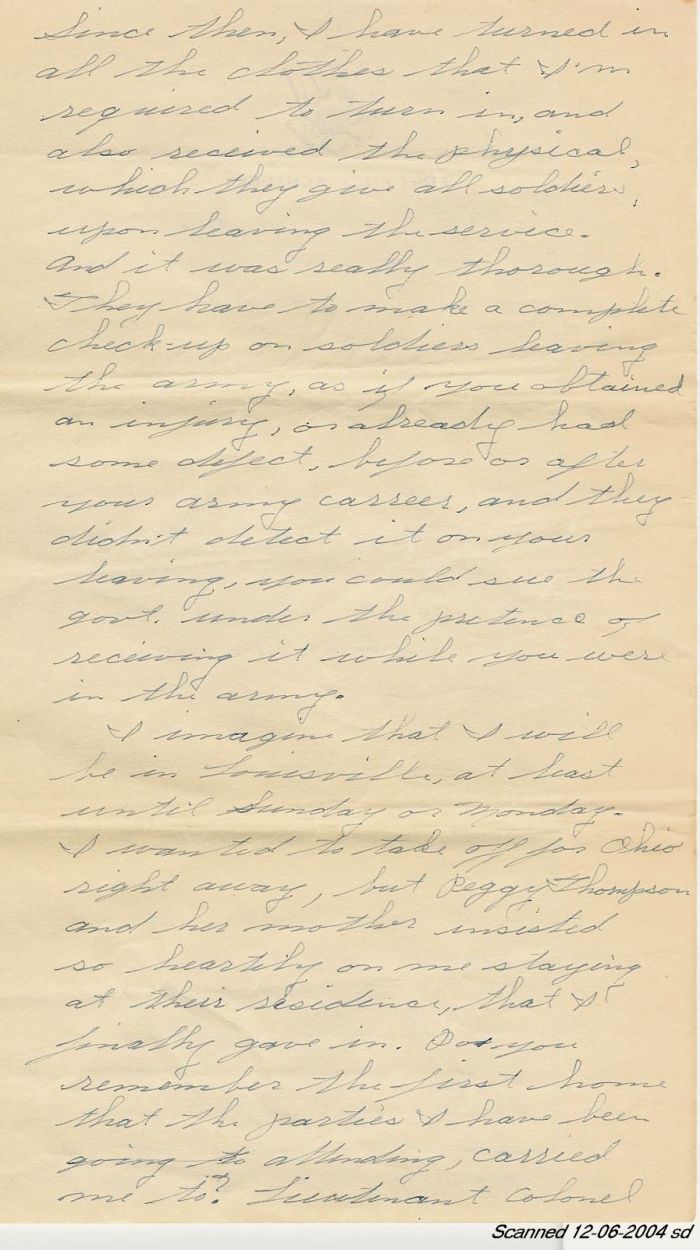 Since then, I have turned in
all the clothes that I'm
required to turn in, and
also received the physical,
which they give all soldiers,
upon leaving the service.
And it was really thorough.
They have to make a complete
check-up on soldiers leaving
the army, as if you obtained
an injury, or already had
some defect, before or after
your army carreer, and they
didn't detect it on your
leaving, you could sue the
govt. under the pretence of
receiving it while you were
in the army.
I imagine that I will
be in Louisville, at least
until Sunday or Monday.
I wanted to take off for Ohio
right away, but Peggy Thompson
and her mother insisted
so heartily on me staying
at their residence, that I
finally gave in. Do you
remember the first home
that the parties I have been
going to attending, carried
me to? Lieutenant Colonel
Scanned 12-06-2004 sd